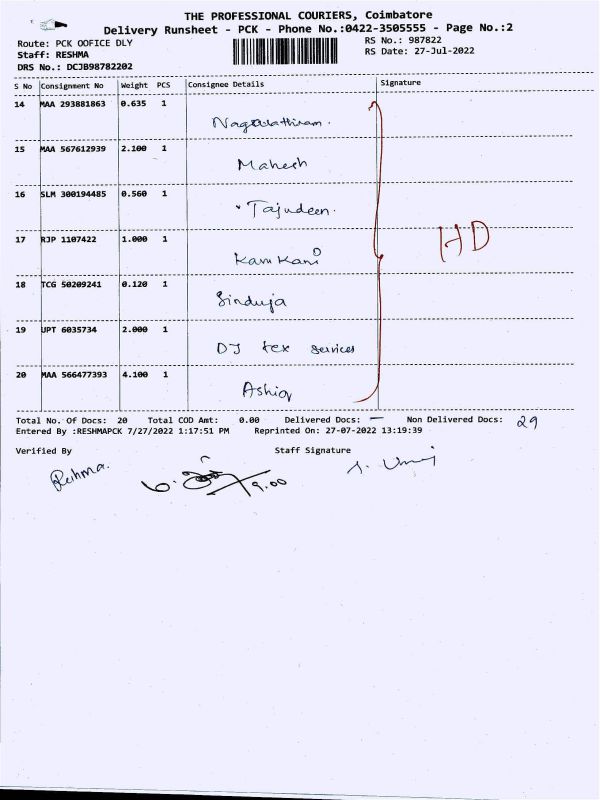 THE PROFESSIONAL COURIERS, Coimbatore
Delivery Runsheet - PCK - Phone No.:0422-3505555 - Page No.:2
Route: PCK OOFICE DLY
RS No.: 987822
Staff: RESHMA
RS Date: 27-Jul-2022
DRS No.: DCJB98782202
S No Consignment No Weight PCS Consignee Details Signature
14 MAA 293881863 0.635 1
15 MAA 567612939 2.100 1
Mahesh
16 SLM 300194485 0.560 1
Tajudeen.
17 RJP 1107422 1.000 1
HD
Kani Kani
18 TCG 50209241 0.120 1
Sinduja
19 UPT 6035734 2.000 1
DJ tex services
20 MAA 566477393 4.100 1
Ashiq
Total No. Of Docs: 20 Total COD Amt: 0.00 Delivered Docs: — Non Delivered Docs: 29
Entered By :RESHMAPCK 7/27/2022 1:17:51 PM Reprinted On: 27-07-2022 13:19:39
Verified By Staff Signature
Reshma.
9.00